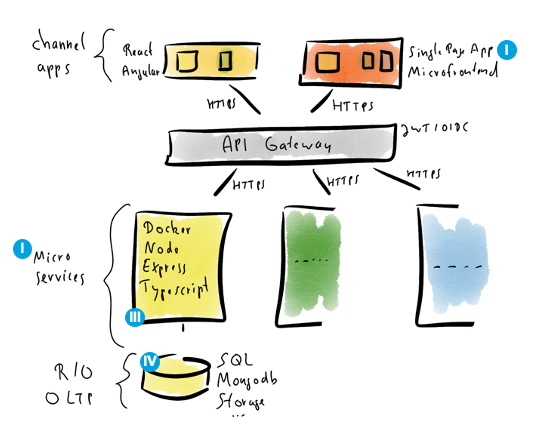 channel
apps
React
Angular
Single Page App
Microfrontend
I
HTTPS
HTTPS
API Gateway
JWT/OIDC
HTTPS
HTTPS
HTTPS
I
Micro
services
Docker
Node
Express
Typescript
III
IV
R/O
OLTP
SQL
Mongodb
Storage
...